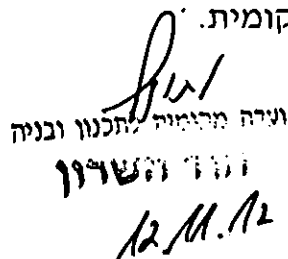 קומית.
ועדה מקומית לתכנון ובניה
הוד השרון
12.11.12